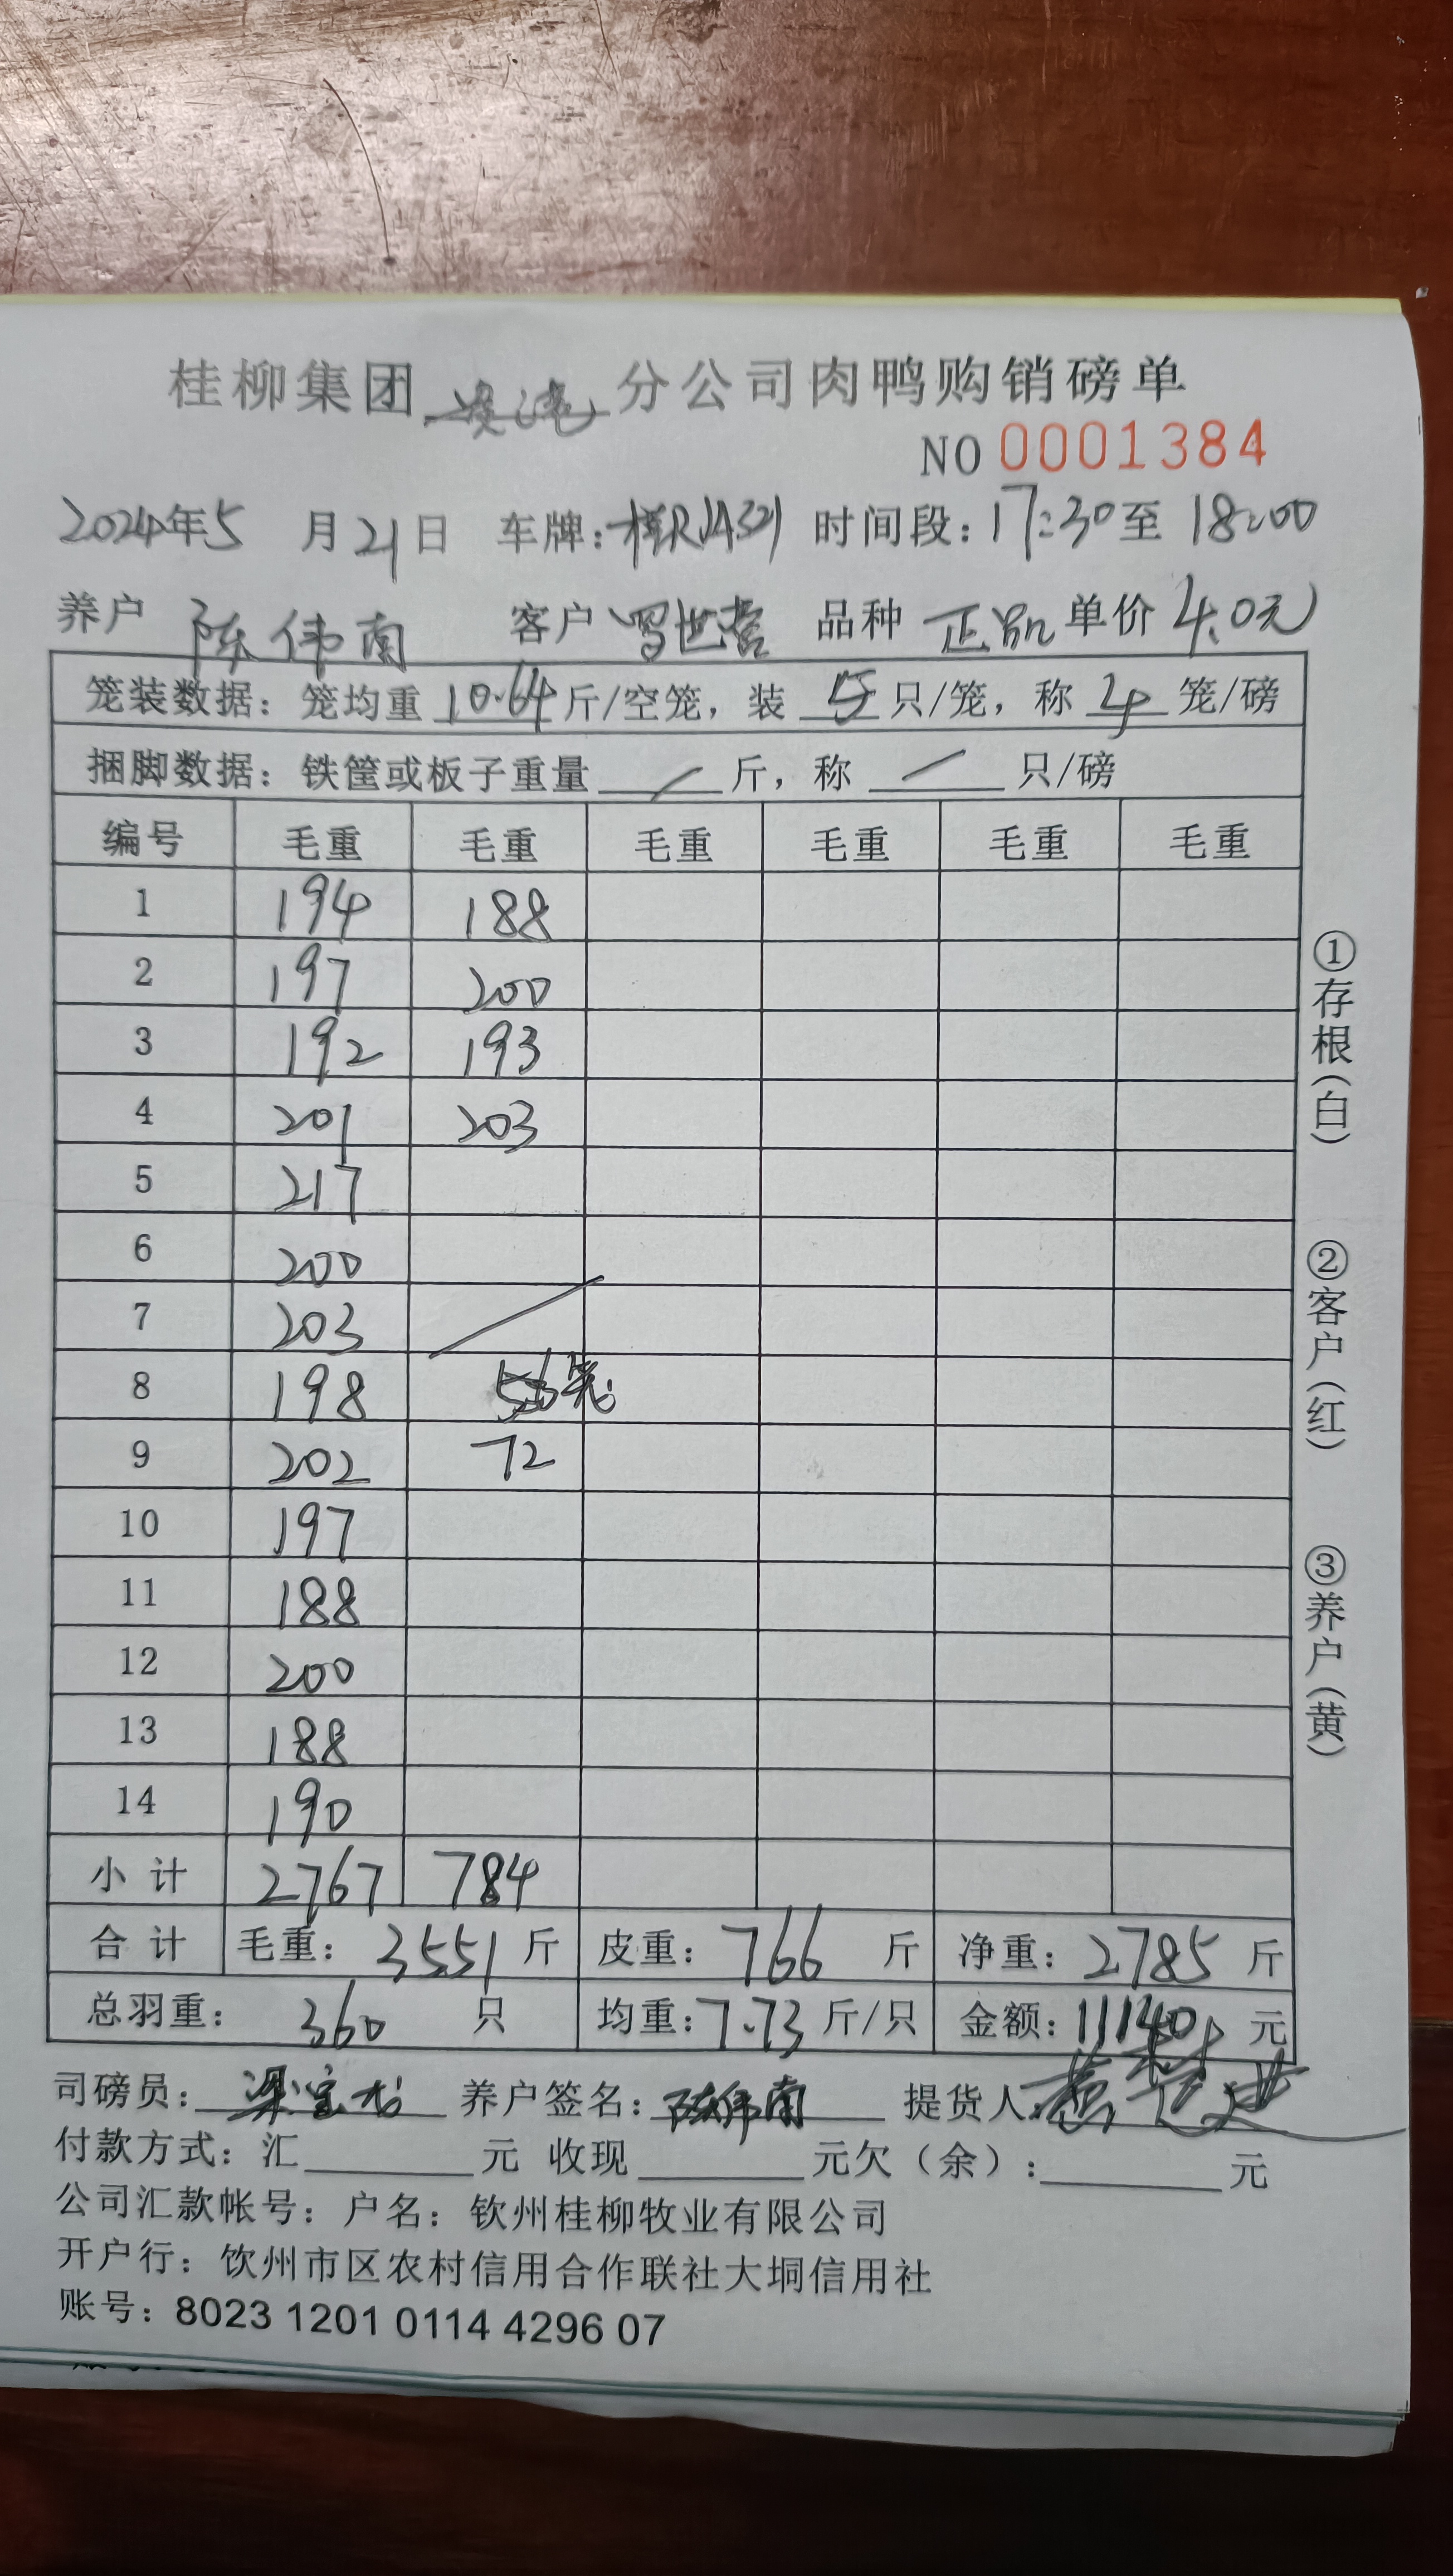 桂柳集团 分公司肉鸭购销磅单
NO 0001384
2024年5月21日 车牌: 时间段:17:30至18:00
养户 陈伟南 客户 品种 正品 单价 4.0元
笼装数据:笼均重 10.64 斤/空笼,装 5 只/笼,称 4 笼/磅
捆脚数据:铁筐或板子重量 / 斤,称 / 只/磅
编号 毛重 毛重 毛重 毛重 毛重 毛重
1 194 188
2 197 200
3 192 193
4 201 203
5 217
6 200
7 203
8 198
9 202 72
10 197
11 188
12 200
13 188
14 190
小计 2767 784
合计 毛重:3551斤 皮重:766斤 净重:2785斤
总羽重:360只 均重:7.73斤/只 金额:11140元
司磅员: 养户签名:陈伟南 提货人:
付款方式:汇 元 收现 元欠(余): 元
公司汇款帐号:户名:钦州桂柳牧业有限公司
开户行:饮州市区农村信用合作联社大垌信用社
账号:8023 1201 0114 4296 07
①存根(白)
②客户(红)
③养户(黄)